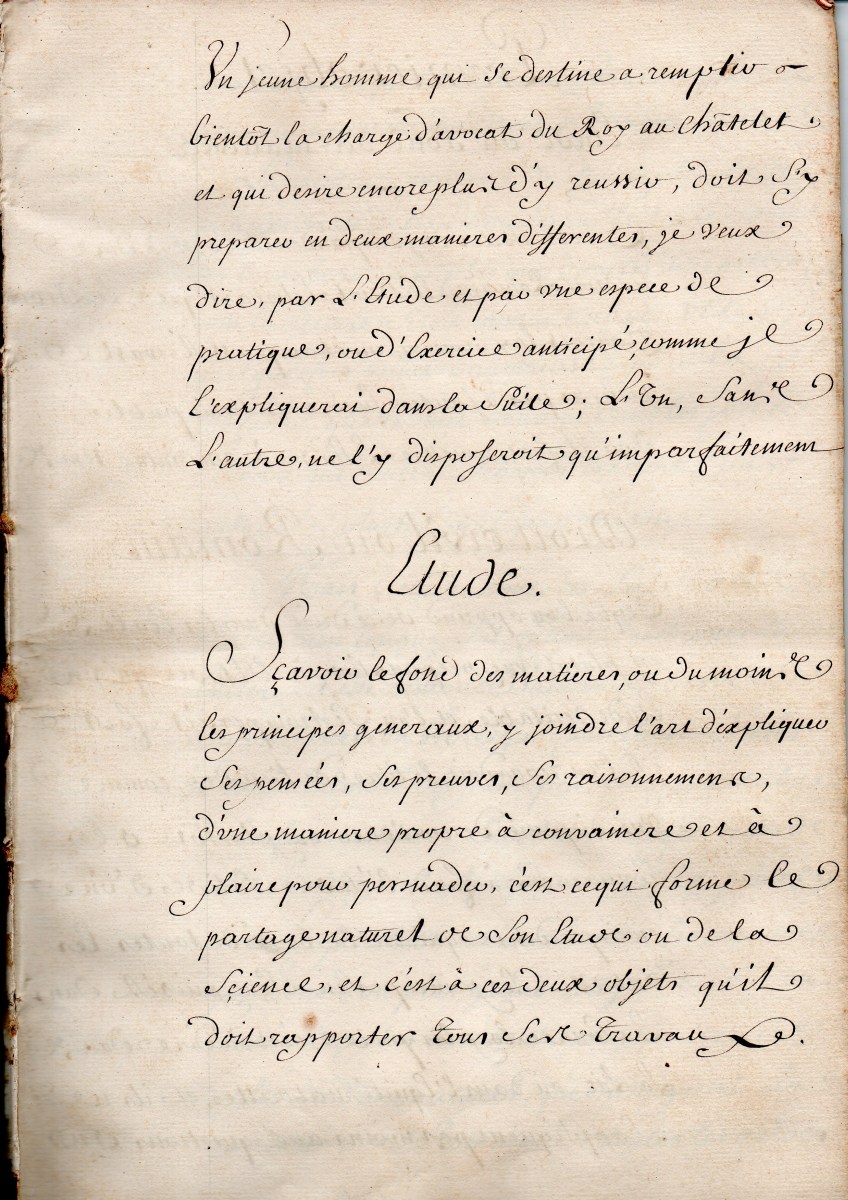 Un jeune homme qui se destine a remplir
bientôt la charge d'avocat du Roy au châtelet
et qui desire encore plus d'y reussir, doit s'y
preparer en deux manieres differentes, je veux
dire, par L'Etude et par vne espece de
pratique, ou d'Exercice anticipé, comme je
l'expliquerai dans la Suite; L'Un, Sans
L'autre, ne l'y disposeroit qu'imparfaitement
Etude.
Sçavoir le fond des matieres, ou du moins
les principes generaux, y joindre l'art d'expliquer
ses pensées, ses preuves, ses raisonnemens,
d'vne maniere propre à convaincre et à
plaire pour persuader, c'est ce qui forme le
partage naturel de Son Etude ou de la
Science, et c'est à ces deux objets qu'il
doit rapporter Tous Ses Travaux.